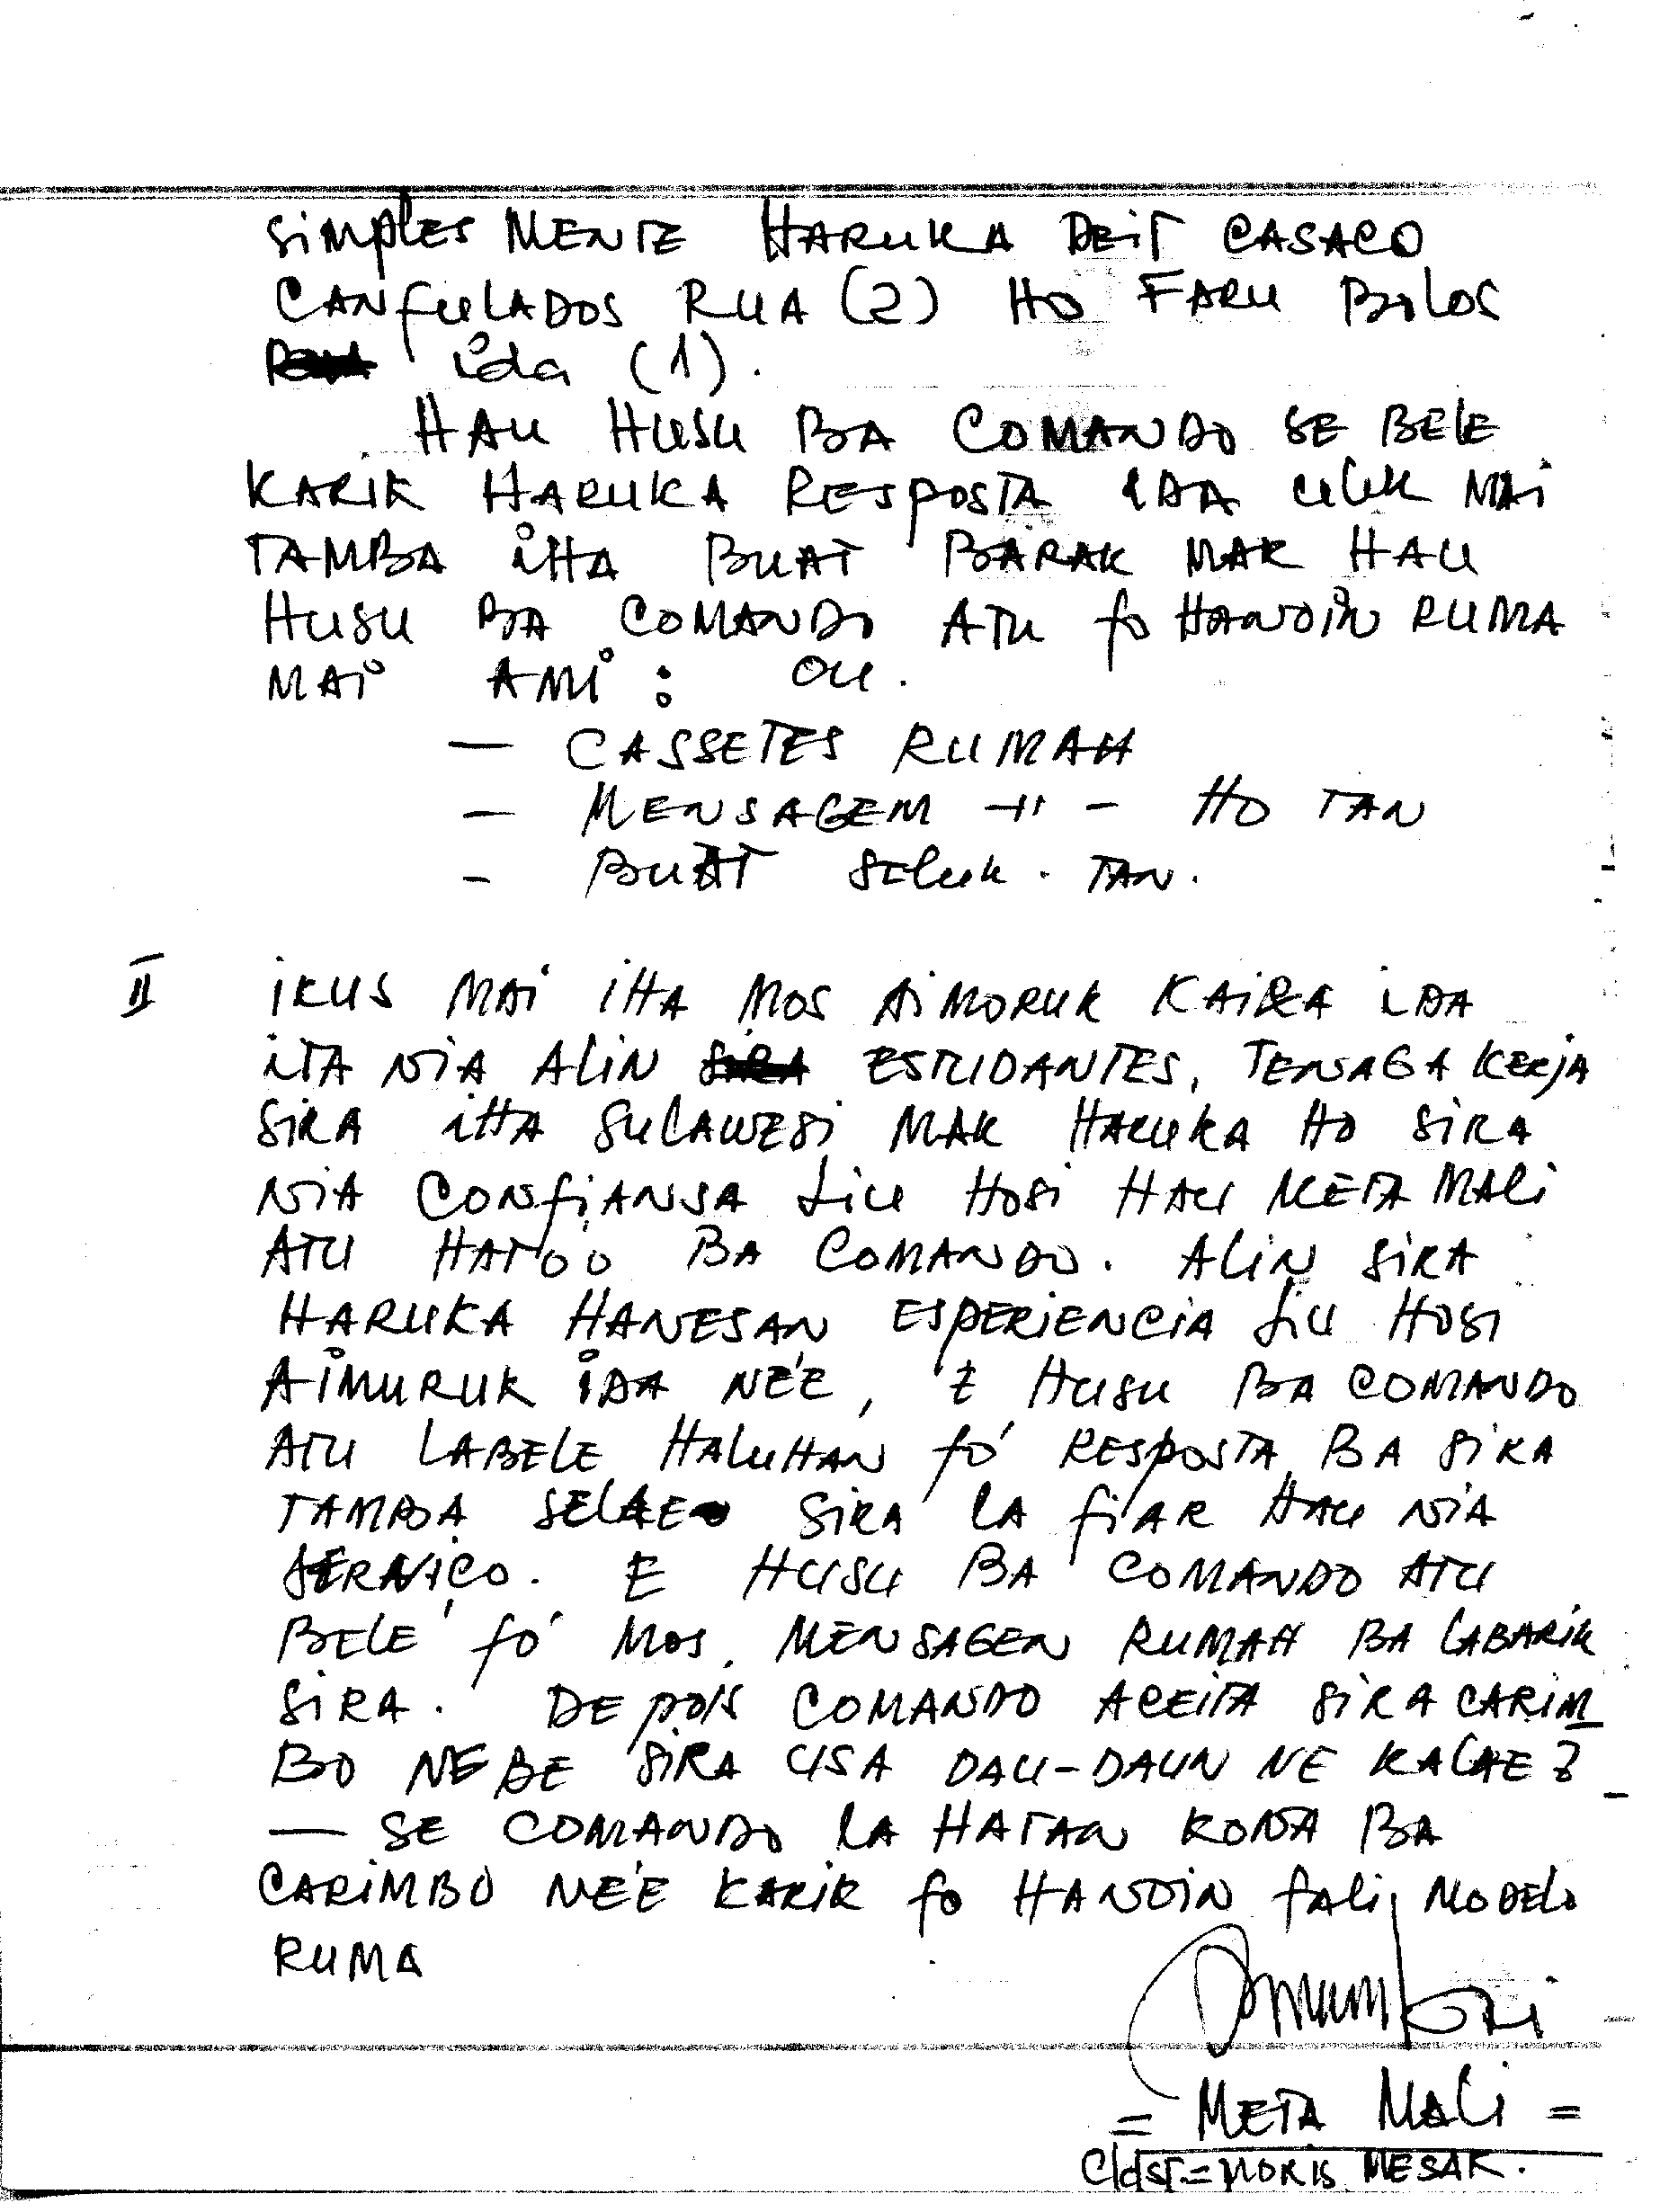 SIMPLES MENTE HARUKA DEIT CASACO
CANFULADOS RUA (2) HO FARU BOLOS
ida (1).
HAU HUSU BA COMANDO SE BELE
KARIK HARUKA RESPOSTA IDA ULUK MAI
TAMBA IHA BUAT BARAK MAK HAU
HUSU BA COMANDO ATU fo HANOIN RUMA
MAI AMI : OU.
— CASSETES RUMAH
— MENSAGEM -11- HO TAN
- BUAT SELUK. TAN.
II IKUS MAI IHA MOS AIMORUK KAIXA IDA
ITA NIA ALIN ESTUDANTES, TENAGA KERJA
SIRA IHA SULAWESI MAK HARUKA HO SIRA
NIA CONFIANSA LIU HOSI HAU META MALI
ATU HATOO BA COMANDO. ALIN SIRA
HARUKA HANESAN ESPERIENCIA LIU HOSI
AIMURUK IDA NE'E, E HUSU BA COMANDO
ATU LABELE HALUHAN FÓ RESPOSTA BA SIRA
TAMBA SELAE SIRA LA FIAR HAU NIA
SERVIÇO. E HUSU BA COMANDO ATU
BELE FÓ MOS MENSAGEN RUMAH BA LABARIK
SIRA. DEPOIS COMANDO ACEITA SIRA CARIM
BO NEBE SIRA USA DAU-DAUN NE KALAE?
— SE COMANDO LA HATAN KONA BA
CARIMBO NE'E KARIK fo HANOIN fali MODELO
RUMA
= META MALI =
C/dst = MORIS MESAK.